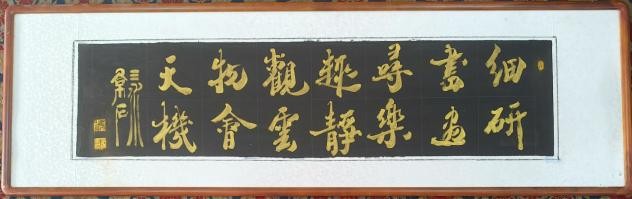 細研
書畫
尋樂
趣靜
觀雲
物會
天機